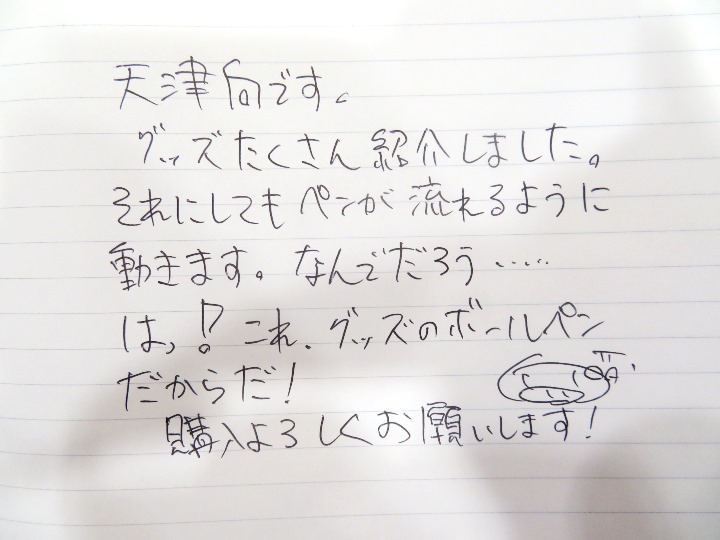 天津向です。
グッズたくさん紹介しました。
それにしてもペンが流れるように
動きます。なんでだろう……
はっ!? これ、グッズのボールペン
だからだ!
購入よろしくお願いします!